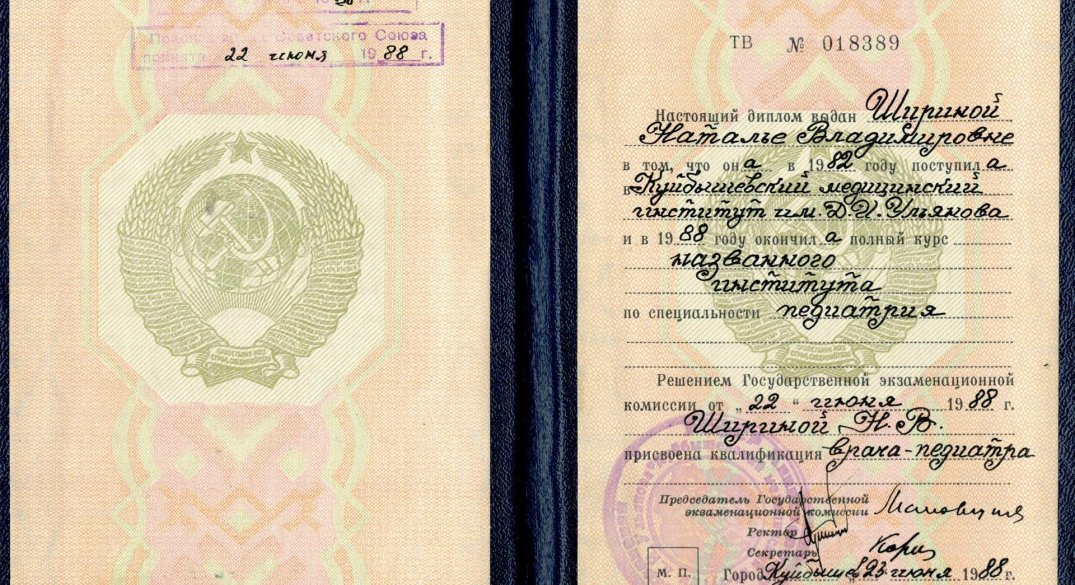 Советского Союза
принята 22 июня 1988 г.
ТВ № 018389
Настоящий диплом выдан Шириной
Наталье Владимировне
в том, что она в 1982 году поступила
в Куйбышевский медицинский
институт им. Д. И. Ульянова
и в 1988 году окончила полный курс
названного
института
по специальности педиатрия
Решением Государственной экзаменационной
комиссии от „22“ июня 1988 г.
Шириной Н. В.
присвоена квалификация врача-педиатра
Председатель Государственной
экзаменационной комиссии
Ректор
Секретарь
М. П. Город Куйбышев 23 июня 1988 г.